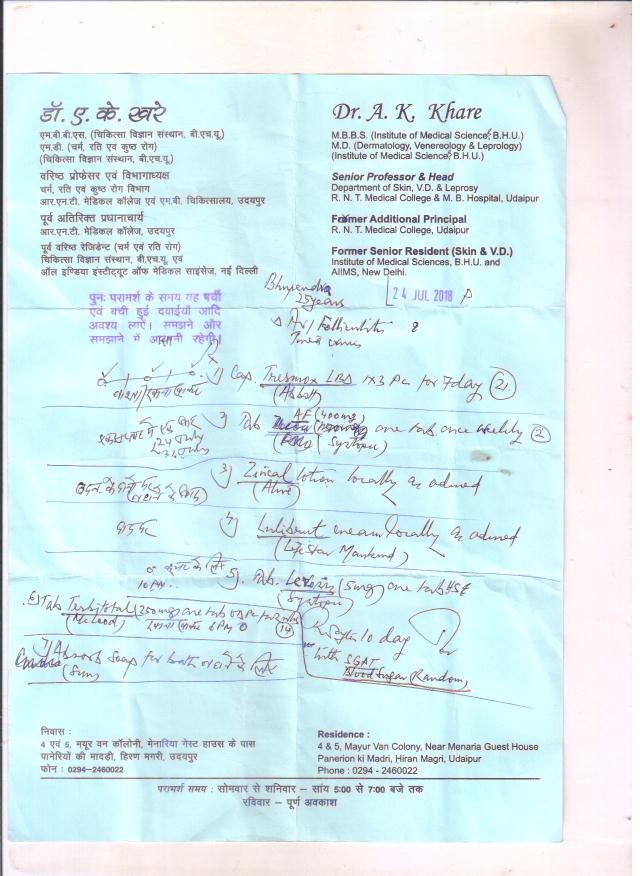 डॉ. ए. के. खरे
एम.बी.बी.एस. (चिकित्सा विज्ञान संस्थान, बी.एच.यू.)
एम.डी. (चर्म, रति एवं कुष्ठ रोग)
(चिकित्सा विज्ञान संस्थान, बी.एच.यू.)
वरिष्ठ प्रोफेसर एवं विभागाध्यक्ष
चर्म, रति एवं कुष्ठ रोग विभाग
आर.एन.टी. मेडिकल कॉलेज एवं एम.बी. चिकित्सालय, उदयपुर
पूर्व अतिरिक्त प्रधानाचार्य
आर.एन.टी. मेडिकल कॉलेज, उदयपुर
पूर्व वरिष्ठ रेजिडेन्ट (चर्म एवं रति रोग)
चिकित्सा विज्ञान संस्थान, बी.एच.यू. एवं
ऑल इण्डिया इंस्टीट्यूट ऑफ मेडिकल साइंसेज, नई दिल्ली
Dr. A. K. Khare
M.B.B.S. (Institute of Medical Science, B.H.U.)
M.D. (Dermatology, Venereology & Leprology)
(Institute of Medical Science, B.H.U.)
Senior Professor & Head
Department of Skin, V.D. & Leprosy
R. N. T. Medical College & M. B. Hospital, Udaipur
Former Additional Principal
R. N. T. Medical College, Udaipur
Former Senior Resident (Skin & V.D.)
Institute of Medical Sciences, B.H.U. and
AIIMS, New Delhi.
Bhupendra
25 years
24 JUL 2018
पुनः परामर्श के समय यह पर्ची
एवं बची हुई दवाईयाँ आदि
अवश्य लाएं। समझने और
समझाने में आसानी रहेगी।
Folliculitis
1) Cap. LBD 1x3 PC for 7 day (21)
(Abbott)
2) Tab AF (400mg) one tab once weekly (2)
(Systopic)
24 July
31 July
3) Zincal lotion locally as advised
4) cream locally as advised
(Lifestar Mankind)
10 PM
5). Tab. (5mg) one tab HSE
(Systopic)
6) Tab (250mg) one tab OD PC for (14)
(McLeod) 6 PM
after 10 day
with SGPT
Blood Sugar (Random)
7) Absorb Soap for bath नहाने के लिए
(Sun)
निवास :
4 एवं 5, मयूर वन कॉलोनी, मेनारिया गेस्ट हाउस के पास
पानेरियों की मादड़ी, हिरण मगरी, उदयपुर
फोन : 0294–2460022
Residence :
4 & 5, Mayur Van Colony, Near Menaria Guest House
Panerion ki Madri, Hiran Magri, Udaipur
Phone : 0294 - 2460022
परामर्श समय : सोमवार से शनिवार – सांय 5:00 से 7:00 बजे तक
रविवार – पूर्ण अवकाश